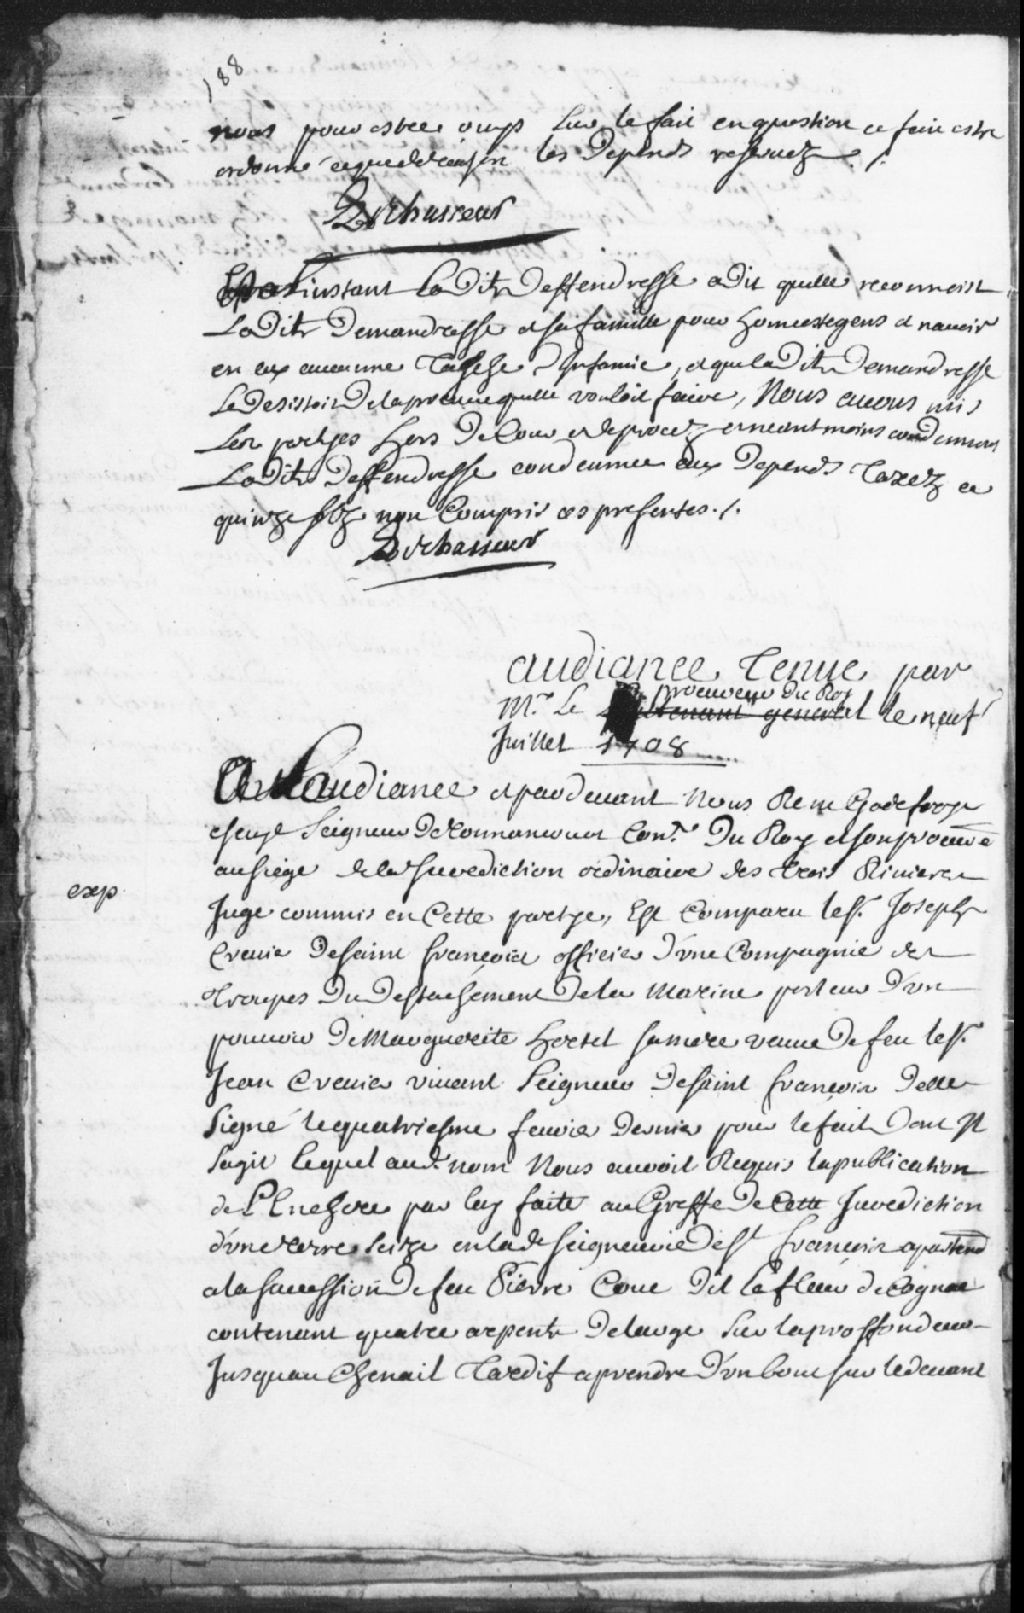 188
nous pour estre ouys sur le fait en question ce fait estre
ordonné ceque de raison les Depends reservez ./.
Dechasseur
Et a Linstant Ladite Deffendresse a dit quelle reconnoist
Ladite Demandresse et sa famille pour honnestes gens et navoir
en eux aucunne Tasche d'Infamie, et que ladite Demandresse
se desistoit de la preuve quelle vouloit faire, Nous avons mis
Les partyes hors De Cour et de procez et neantmoins condamnons
Ladite Deffendresse condamnée aux Depends Taxez a
quinze solz non Compris ces presentes ./.
Dechasseur
audiance Tenue par
procureur du Roy
Mr. Le Lieutenant general le neuf
Juillet 1708
A Laudiance et pardevant Nous Rene Godefroy
escuyr Seigneur De Tonnancour Conr. Du Roy et son procureur
au siege de la Jurediction ordinaire des Trois Rivieres
exp
Juge commis en Cette partye, Est Comparu le Sr. Joseph
Crevie De saint françois officier d'une Compagnie des
Troupes Du Destachement De la Marine porteur d'un
pouvoir De Marguerite Hertel sa mere veuve De feu le Sr.
Jean Crevier vivant Seigneur De saint françois d'elle
Signé le quatriesme fevrier Dernier pour le fait Dont Il
sagit lequel aud. nom Nous auroit Requis la publication
de L'Enchere par luy faite au Greffe De Cette Jurediction
d'une Terre seize en lade Seigneurie de St. françois apartenend
a la succession De feu Pierre Couc Dit La fleur de Cognac
contenant quatre arpents de large sur la proffondeur
Jusquau Chenail Tardif a prendre d'un bout sur le devant